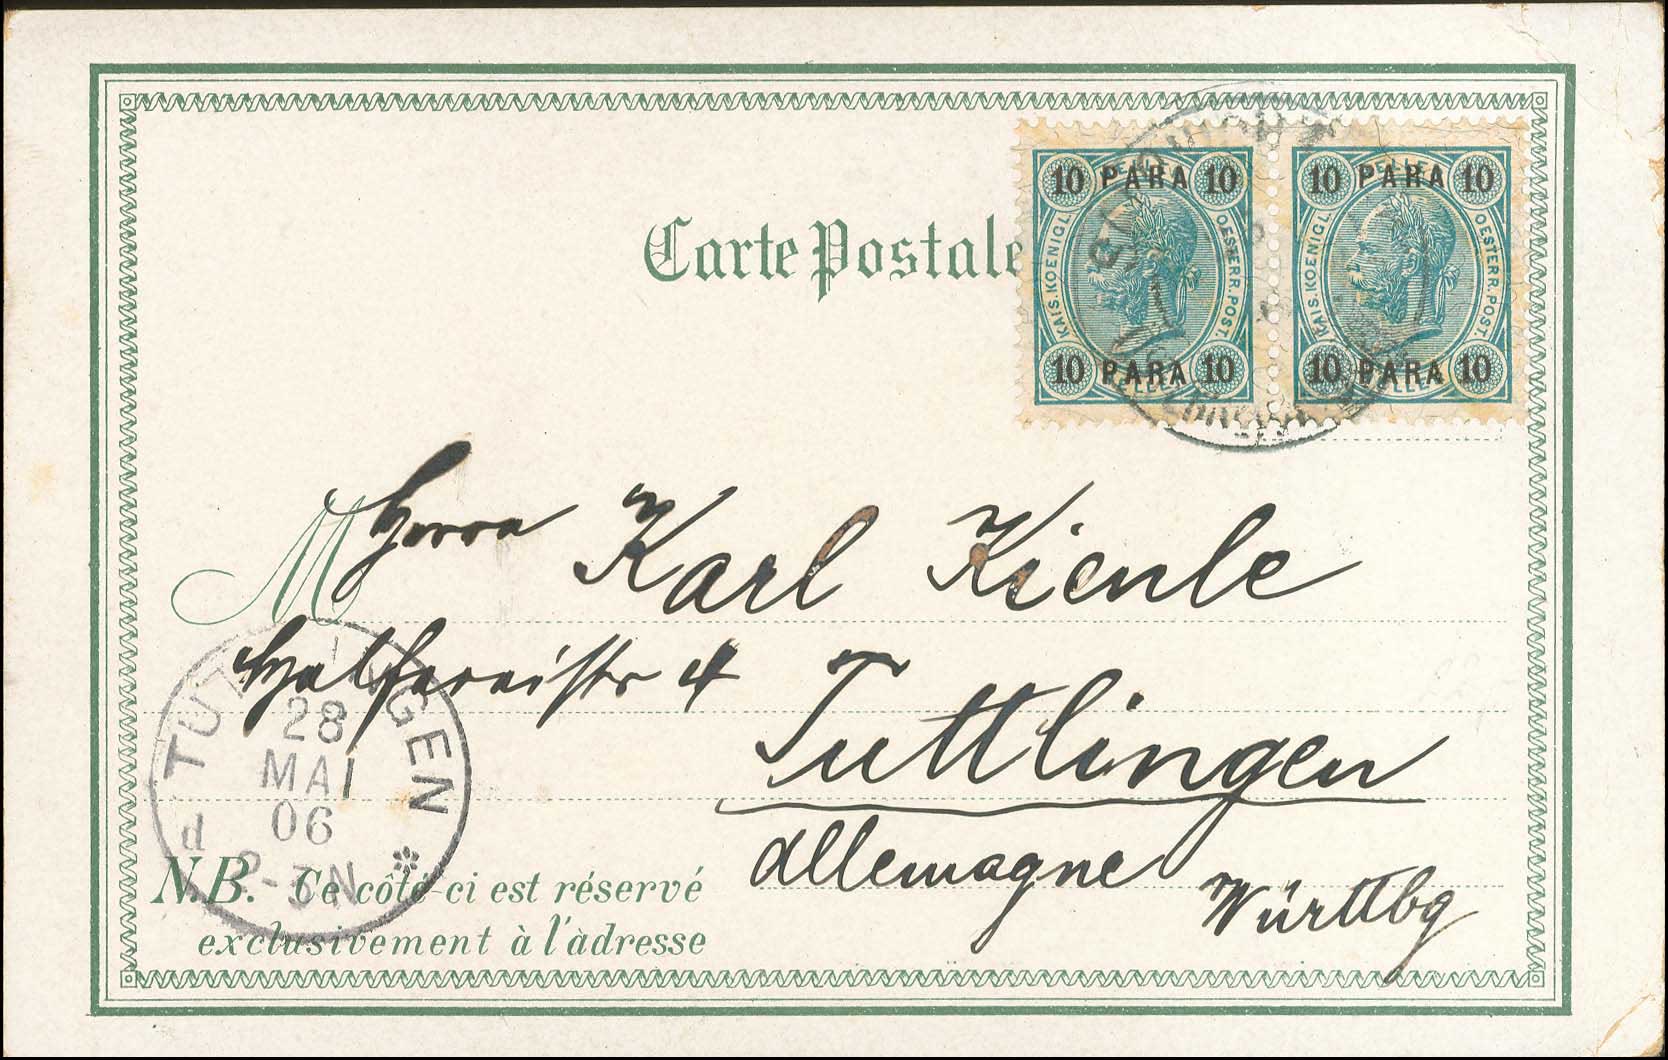 Carte Postale
10 PARA 10
KAIS. KOENIGL. OESTERR. POST.
10 PARA 10
10 PARA 10
KAIS. KOENIGL. OESTERR. POST.
10 PARA 10
M
Herrn Karl Kienle
4
Tuttlingen
Allemagne
Württbg
TUTTLINGEN
28
MAI
06
2-3N
d
N.B. Ce côté-ci est réservé
exclusivement à l'àdresse